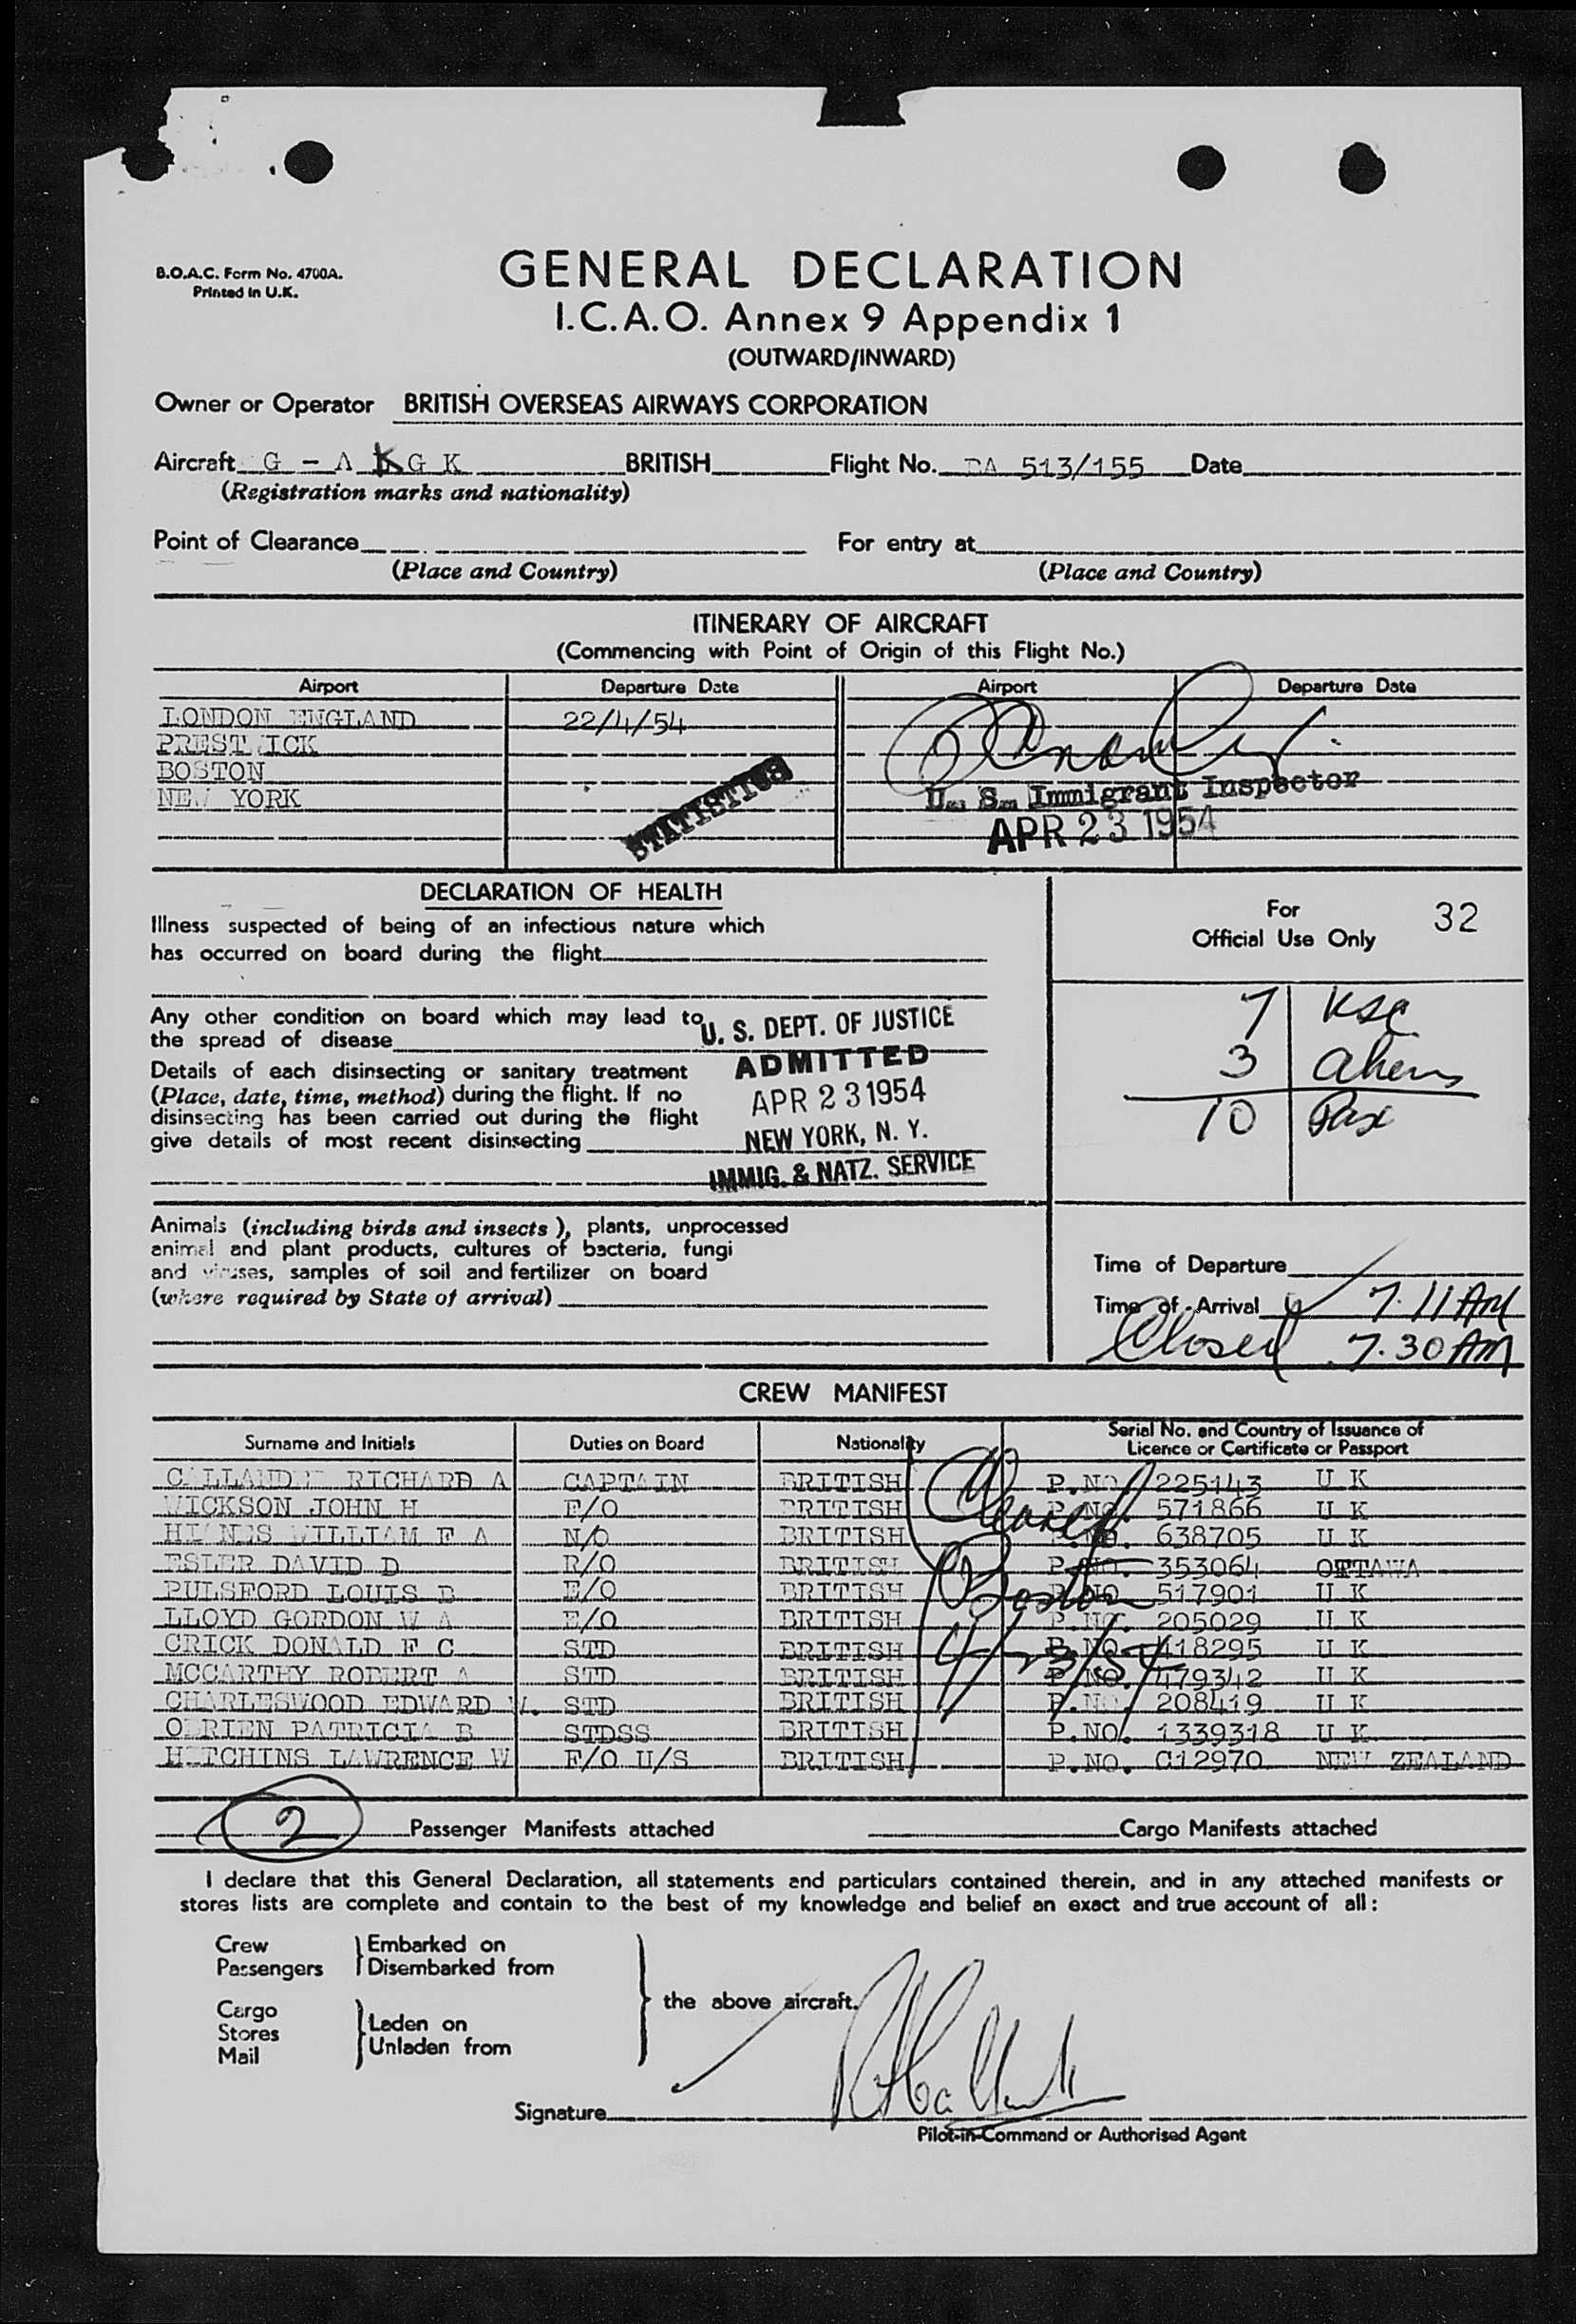 B.O.A.C. Form No. 4700A.
Printed in U.K.
GENERAL DECLARATION
I.C.A.O. Annex 9 Appendix 1
(OUTWARD/INWARD)
Owner or Operator BRITISH OVERSEAS AIRWAYS CORPORATION
Aircraft G - A K G K BRITISH Flight No. BA 513/155 Date
(Registration marks and nationality)
Point of Clearance For entry at
(Place and Country) (Place and Country)
ITINERARY OF AIRCRAFT
(Commencing with Point of Origin of this Flight No.)
Airport Departure Date Airport Departure Date
LONDON ENGLAND 22/4/54
PRESTWICK
BOSTON
NEW YORK
STATISTICS
U. S. Immigrant Inspector
APR 23 1954
DECLARATION OF HEALTH
Illness suspected of being of an infectious nature which
has occurred on board during the flight
For
Official Use Only 32
Any other condition on board which may lead to
the spread of disease
Details of each disinsecting or sanitary treatment
(Place, date, time, method) during the flight. If no
disinsecting has been carried out during the flight
give details of most recent disinsecting
U. S. DEPT. OF JUSTICE
ADMITTED
APR 23 1954
NEW YORK, N. Y.
IMMIG. & NATZ. SERVICE
7 USC
3 Aliens
10 Pax
Animals (including birds and insects), plants, unprocessed
animal and plant products, cultures of bacteria, fungi
and viruses, samples of soil and fertilizer on board
(where required by State of arrival)
Time of Departure
Time of Arrival 7.11 AM
Closed 7.30 AM
CREW MANIFEST
Surname and Initials Duties on Board Nationality Serial No. and Country of Issuance of
Licence or Certificate or Passport
RICHARD A CAPTAIN BRITISH P.NO. 225143 U K
WICKSON JOHN H F/O BRITISH P.NO. 571866 U K
WILLIAM F A N/O BRITISH P.NO. 638705 U K
ESLER DAVID D R/O BRITISH P.NO. 353064 OTTAWA
PULSFORD LOUIS B E/O BRITISH P.NO. 517901 U K
LLOYD GORDON W A E/O BRITISH P.NO. 205029 U K
CRICK DONALD F C STD BRITISH P.NO. 418295 U K
MCCARTHY ROBERT A STD BRITISH P.NO. 479342 U K
CHARLESWOOD EDWARD W. STD BRITISH P.NO. 208419 U K
OBRIEN PATRICIA B STDSS BRITISH P.NO. 1339318 U K
HUTCHINS LAWRENCE W F/O U/S BRITISH P.NO. C12970 NEW ZEALAND
Cleared
Boston
4/23/54
2 Passenger Manifests attached Cargo Manifests attached
I declare that this General Declaration, all statements and particulars contained therein, and in any attached manifests or
stores lists are complete and contain to the best of my knowledge and belief an exact and true account of all:
Crew Embarked on
Passengers Disembarked from
the above aircraft.
Cargo
Stores Laden on
Mail Unladen from
Signature
Pilot-in-Command or Authorised Agent